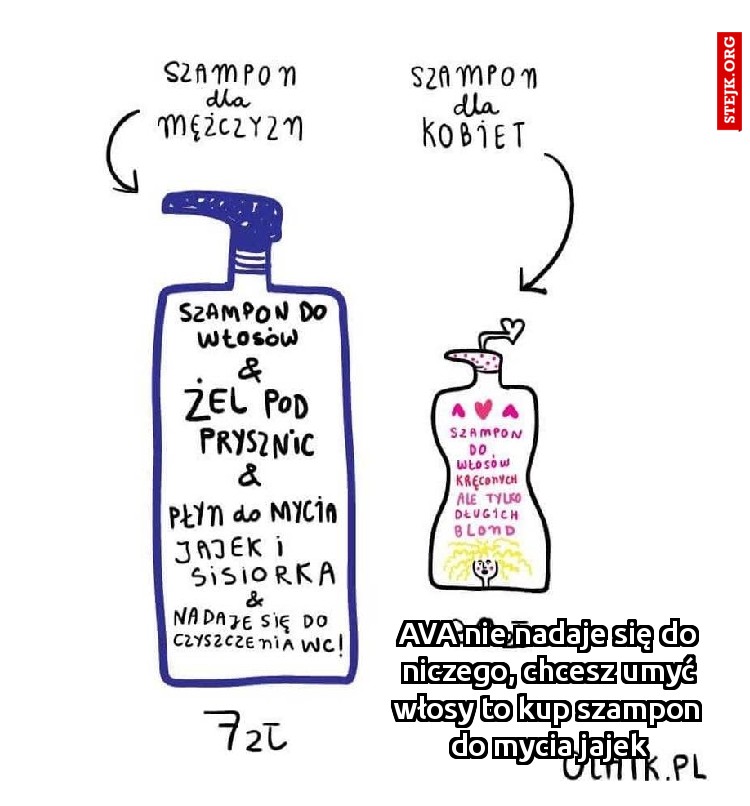 STEJK.ORG
SZAMPON
dla
MĘŻCZYZN
SZAMPON
dla
KOBIET
SZAMPON DO
WŁOSÓW
&
ŻEL POD
PRYSZNIC
&
PŁYN do MYCIA
JAJEK i
SiSiORKA
&
NADAJE SIĘ DO
CZYSZCZENIA WC!
7 zł
A ♥ A
SZAMPON
DO
WŁOSÓW
KRĘCONYCH
ALE TYLKO
DŁUGICH
BLOND
AVA nie nadaje się do
niczego, chcesz umyć
włosy to kup szampon
do mycia jajek